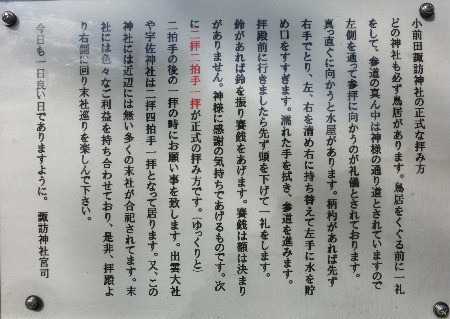 小前田諏訪神社の正式な拝み方
どの神社も必ず鳥居があります。鳥居をくぐる前に一礼
をして、参道の真ん中は神様の通り道とされていますので
左側を通って参拝に向かうのが礼儀とされております。
真っ直ぐに向かうと水屋があります。柄杓があれば先ず
右手でとり、左、右を清め右に持ち替えて左手に水を貯
め口をすすぎます。濡れた手を拭き、参道を進みます。
拝殿前に行きましたら先ず頭を下げて一礼をします。
鈴があれば鈴を振り賽銭をあげます。賽銭は額は決まり
がありません。神様に感謝の気持ちであげるものです。次
に二拝二拍手一拝が正式の拝み方です。（ゆっくりと）
二拍手の後の一拝の時にお願い事を致します。出雲大社
や宇佐神社は二拝四拍手一拝となって居ります。又、この
神社には近辺には無い多くの末社が合祀されてます。末
社には色々なご利益を持ち合わせており、是非、拝殿よ
り右側に回り末社巡りを楽しんで下さい。
今日も一日良い日でありますように。 諏訪神社宮司